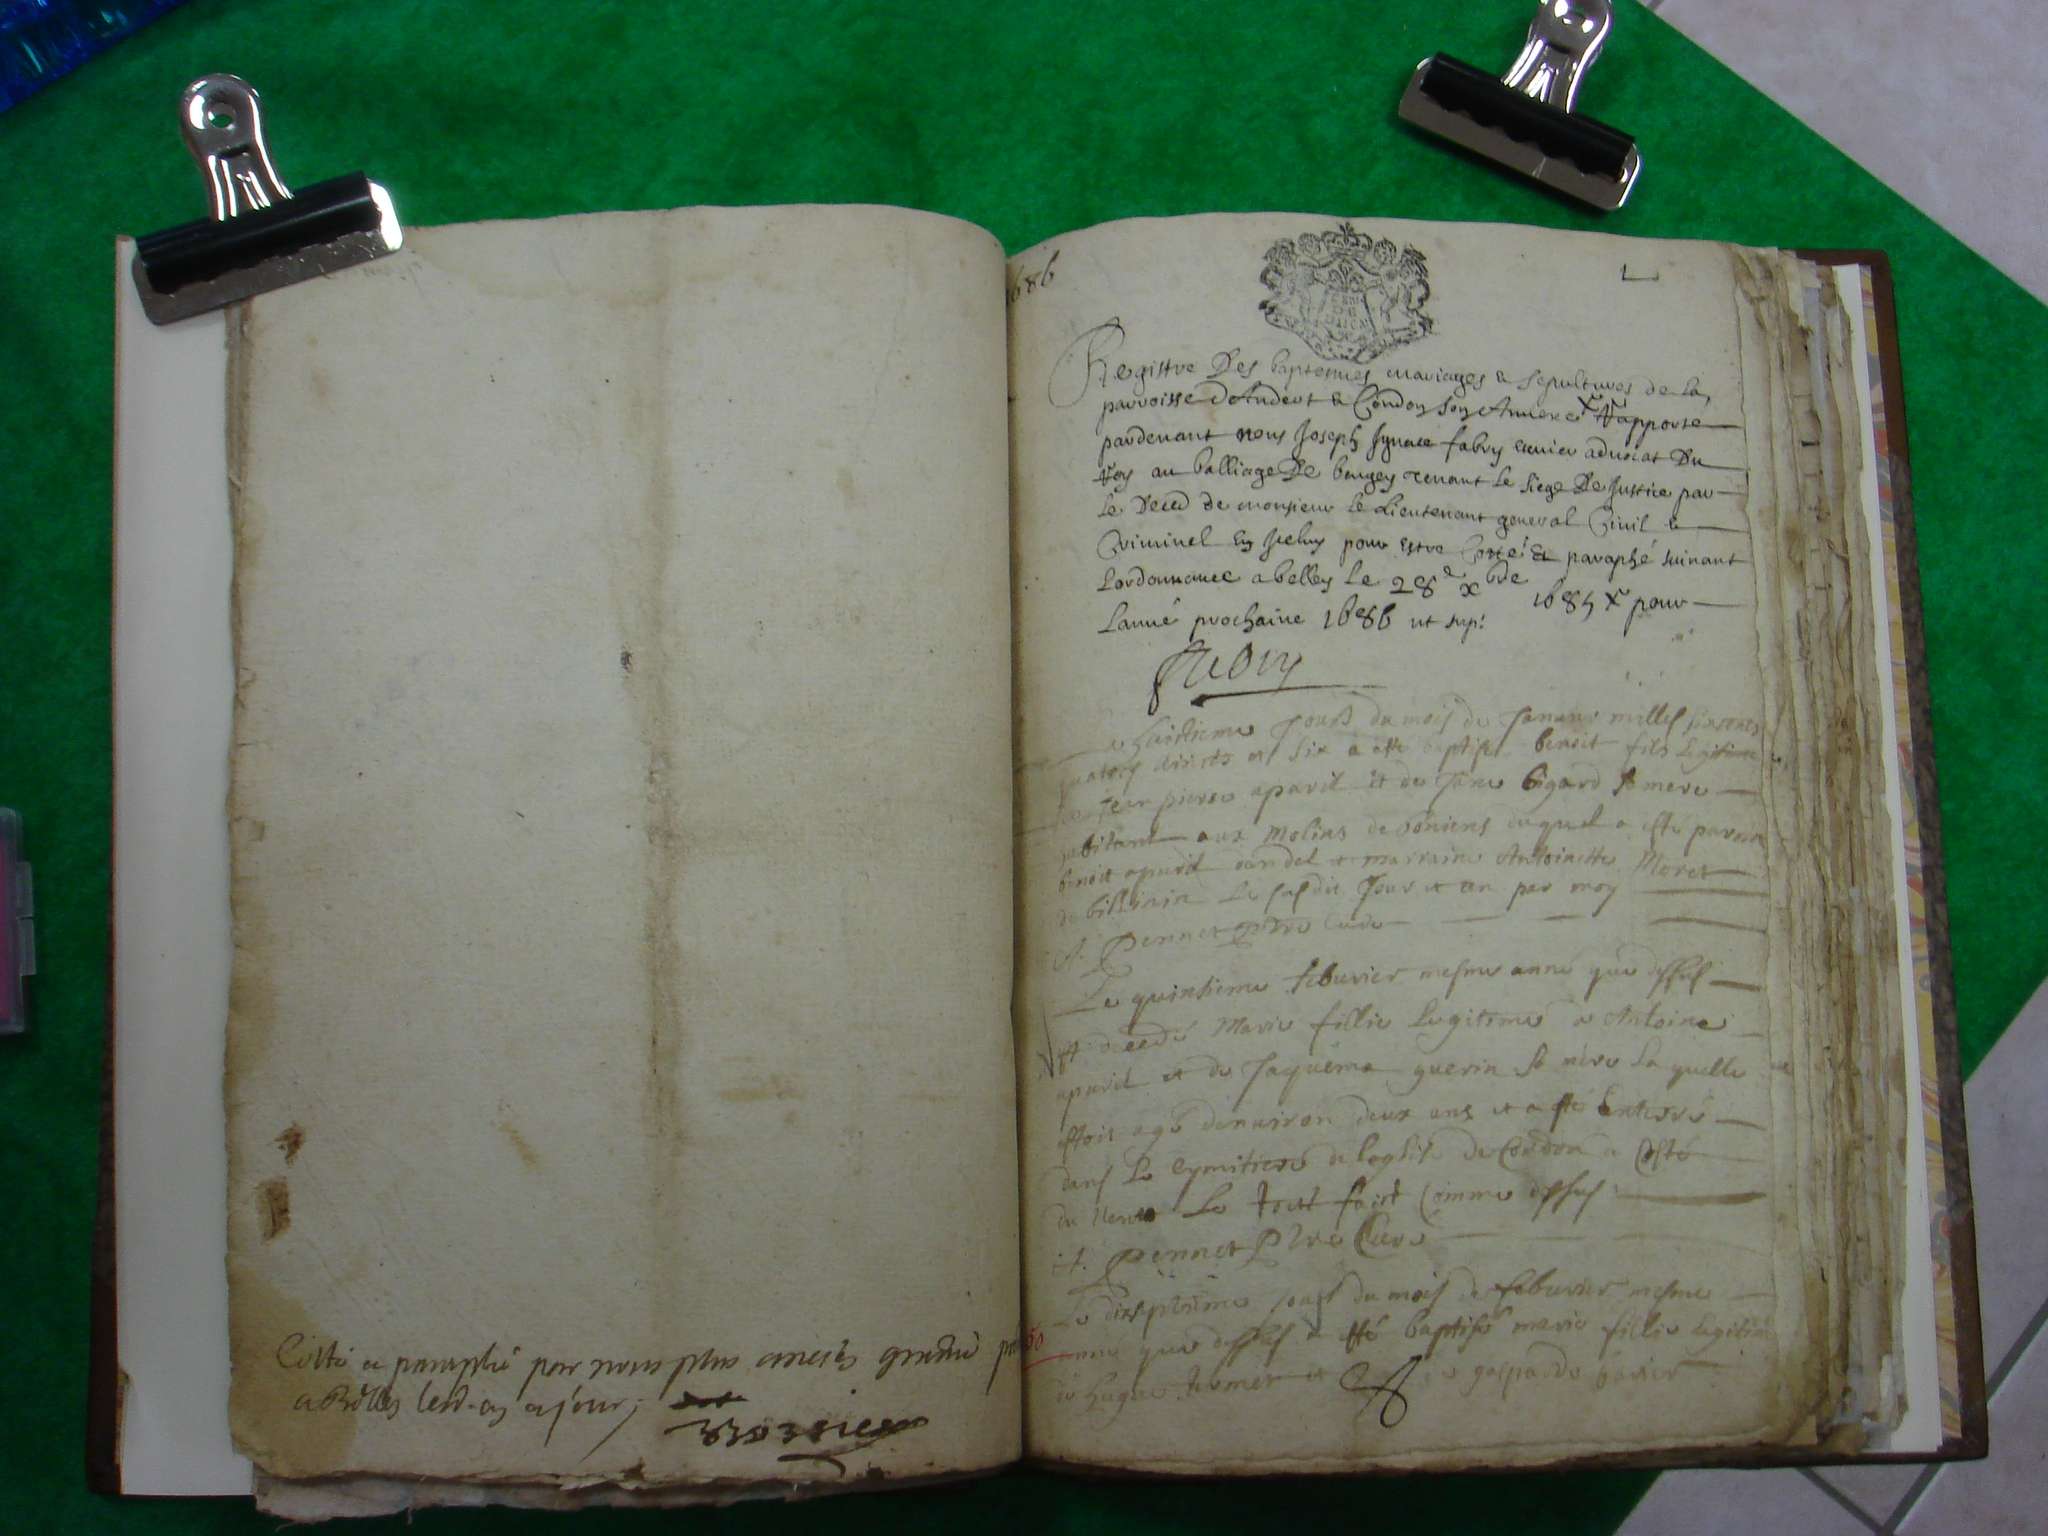 Cotté et paraphé par nous plus ancien gradué
a Belley led. an et jour;
1686
L
Registre Des baptemes mariages & sepultures de la
parroisse Dandert & Condon son Annexe Rapporte
pardevant nous Joseph Ignace fabry escuier advocat Du
Roy au balliage De beugey tenant le siege De Justice par
le Deced de monsieur le Lieutenant general Civil &
Criminel En Iceluy pour Estre Cotté Et paraphé suivant
Lordonnance a belley le 28e xbre 1685 pour
Lanné prochaine 1686 ut sup:
Fabry
huictieme Jour du mois de Janvier mille six cents
quatre vincts et six a esté baptisé benoit fils Legitime
Jean pierre aparil et de Jane bigard sa mere
habitant aux Molins de duquel a esté parrain
benoit aparil et marraine Antoinette Moret
de billinin Le susdit Jour et an par moy
A. Pennet ptre Curé
Le quinsieme febuvrier mesme anné que dessus
est decedé Marie fillie Legitime a Antoine
aparil et de Jaquema guerin sa mere La quelle
estoit agé denuiron deux ans et a esté Enterré
dans Le Cymitiere de leglise de Condon a Costé
du Le tout faict Comme dessus
A. Pennet Ptre Curé
Le dixseptieme Jour du mois de febuvrier mesme
50
anné que dessus a esté baptisé marie fillie legitime
de hugue et gasparde